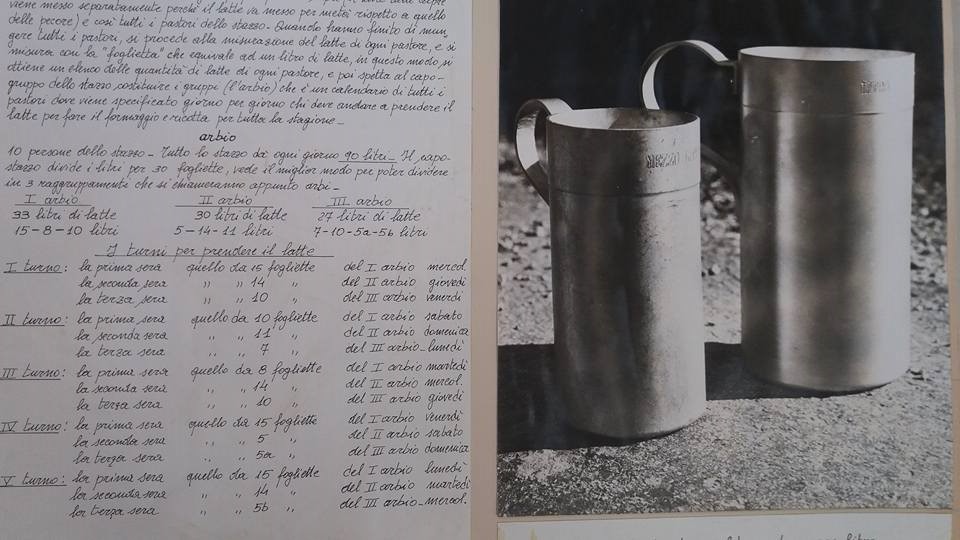 viene messo separatamente perché il latte va messo per metà rispetto a quello
delle pecore) e così tutti i pastori dello stazzo. Quando hanno finito di mun
gere tutti i pastori, si procede alla misurazione del latte di ogni pastore, e si
misura con la "foglietta" che equivale ad un litro di latte, in questo modo, si
ottiene un elenco delle quantità di latte di ogni pastore, e poi spetta al capo-
gruppo dello stazzo, costituire i gruppi (l'arbio) che è un calendario di tutti i
pastori dove viene specificato giorno per giorno chi deve andare a prendere il
latte per fare il formaggio e ricotta per tutta la stagione_
arbio
10 persone dello stazzo_ Tutto lo stazzo dà ogni giorno 90 litri_ Il capo-
stazzo divide i litri per 30 fogliette, vede il miglior modo per poter dividere
in 3 raggruppamenti che si chiameranno appunto arbi_
I arbio II arbio III arbio
33 litri di latte 30 litri di latte 27 litri di latte
15-8-10 litri 5-14-11 litri 7-10-5a-5b litri
I turni per prendere il latte
I turno: la prima sera quello da 15 fogliette del I arbio mercol.
la seconda sera " " 14 " del II arbio giovedì
la terza sera " " 10 " del III arbio venerdì
II turno: la prima sera quello da 10 fogliette del I arbio sabato
la seconda sera " " 11 " del II arbio domenica
la terza sera " " 7 " del III arbio_lunedì
III turno: la prima sera quello da 8 fogliette del I arbio martedì
la seconda sera " " 14 " del II arbio mercol.
la terza sera " " 10 " del III arbio giovedì
IV turno: la prima sera quello da 15 fogliette del I arbio venerdì
la seconda sera " " 5 " del II arbio sabato
la terza sera " " 5a " del III arbio domenica
V turno: la prima sera quello da 15 fogliette del I arbio lunedì
la seconda sera " " 14 " del II arbio martedì
la terza sera " " 5b " del III arbio_mercol.
MEZZO